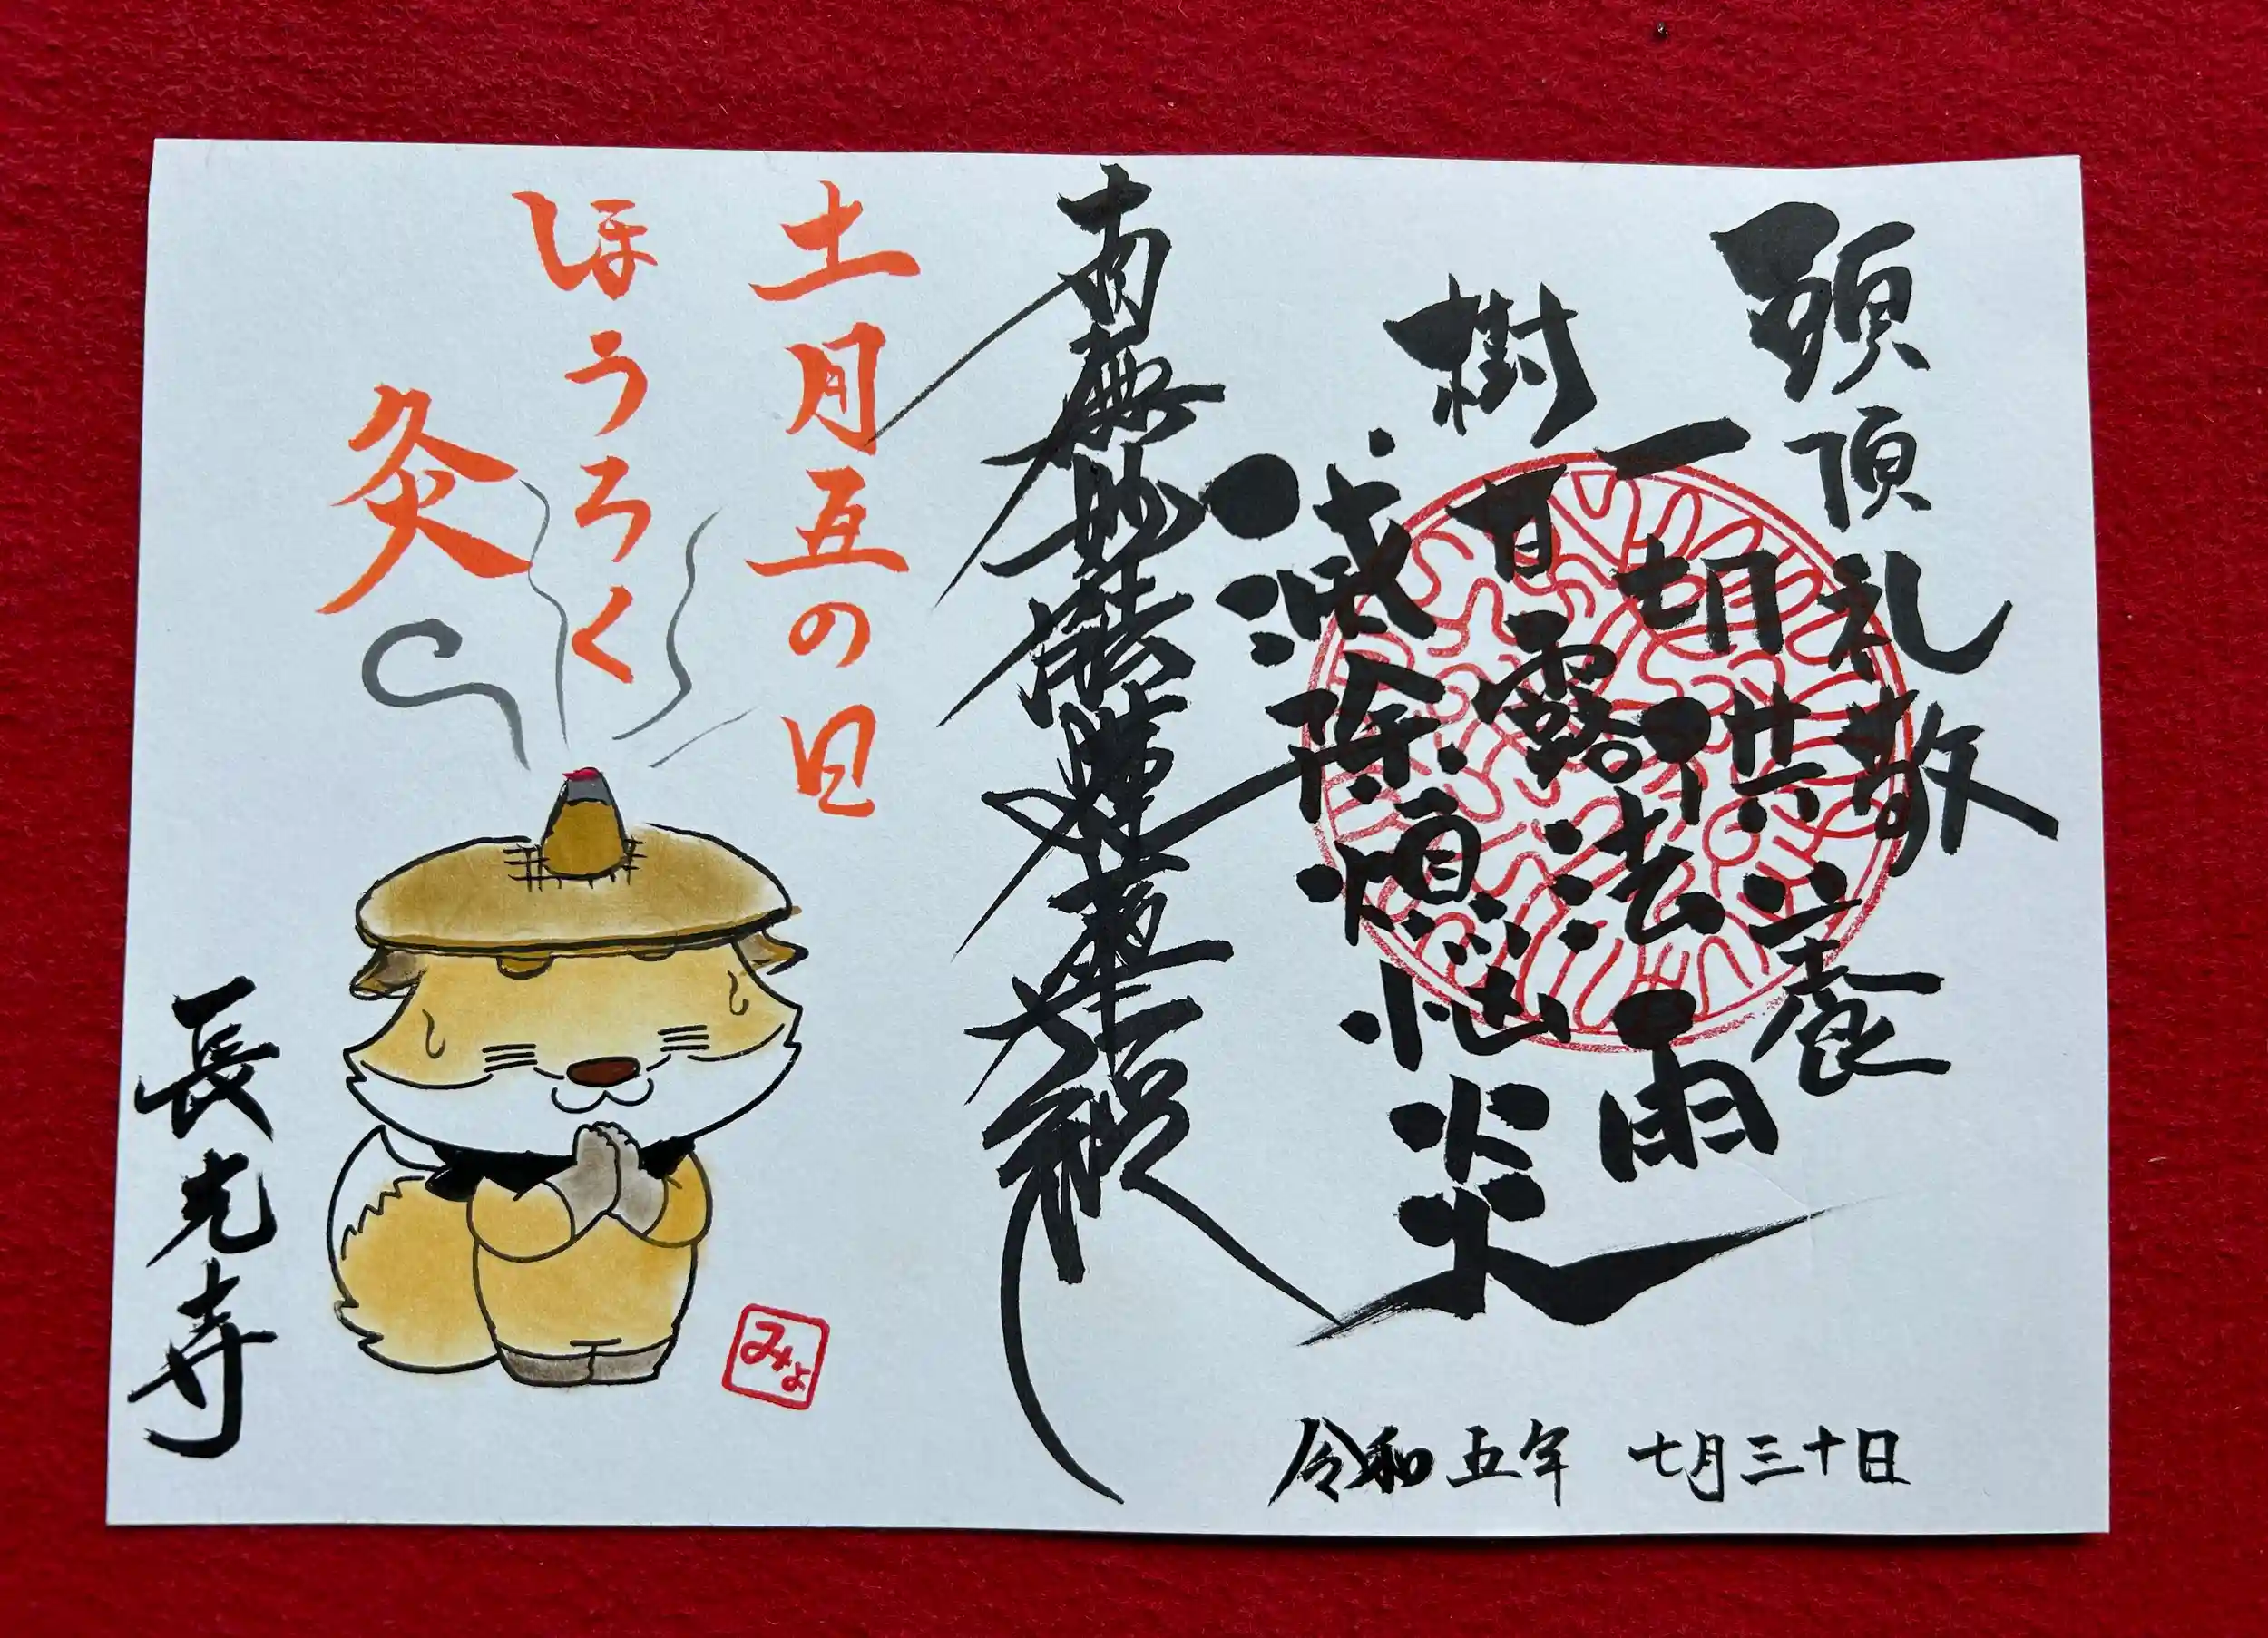 頭頂礼敬
一切供養
樹甘露法雨
滅除煩悩炎
令和五年 七月三十日
南無妙法蓮華経
土用丑の日
ほうろく
灸
みょ
長光寺